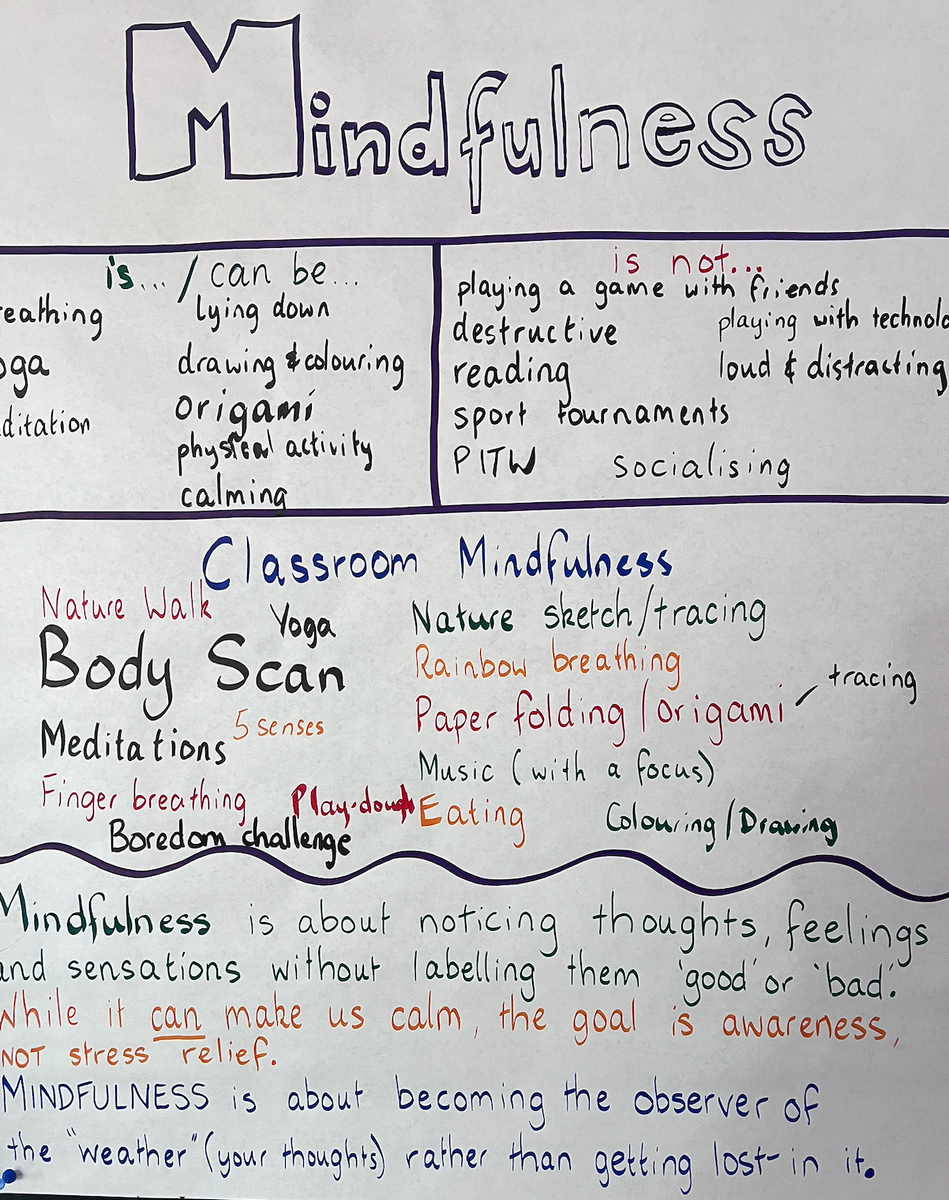 Mindfulness
is... / can be...
eathing
oga
ditation
lying down
drawing & colouring
origami
physical activity
calming
is not...
playing a game with friends
destructive
playing with technolo
reading
loud & distracting
sport tournaments
PITW
socialising
Classroom Mindfulness
Nature Walk
Yoga
Body Scan
5 senses
Meditations
Finger breathing
Play-dough
Boredom challenge
Nature sketch/tracing
Rainbow breathing
tracing
Paper folding/Origami
Music (with a focus)
Eating
Colouring/Drawing
Mindfulness is about noticing thoughts, feelings
and sensations without labelling them 'good' or 'bad'.
While it can make us calm, the goal is awareness,
NOT stress relief.
MINDFULNESS is about becoming the observer of
the "weather" (your thoughts) rather than getting lost in it.